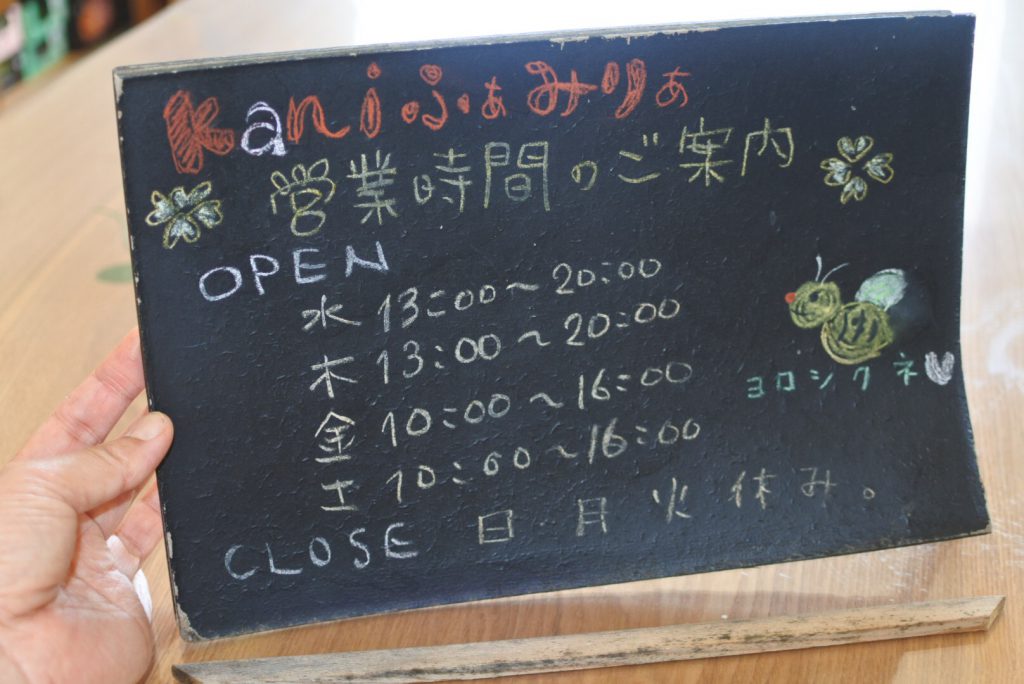 Kaniふぁみりぁ
営業時間のご案内
OPEN
水 13:00～20:00
木 13:00～20:00
金 10:00～16:00
土 10:00～16:00
ヨロシクネ
CLOSE 日 月 火 休み。